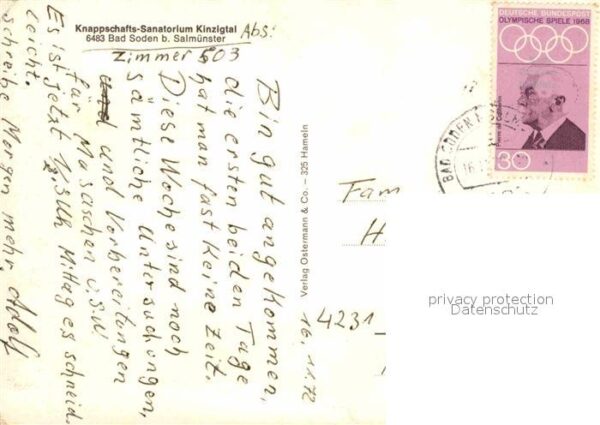 Knappschafts-Sanatorium Kinzigtal
6483 Bad Soden b. Salmünster
Abs:
Zimmer 503
Bin gut angekommen,
die ersten beiden Tage
hat man fast keine Zeit.
Diese Woche sind noch
sämtliche Untersuchungen,
und Vorbereitungen
für Massachen u.s.w
Es ist jetzt 1/2 3 Uh Mittag es schneid.
leicht.
schreibe Morgen mehr, Adolf
Verlag Ostermann & Co. – 325 Hameln
16. 11. 72
Fam
H
4231
DEUTSCHE BUNDESPOST
OLYMPISCHE SPIELE 1968
Pierre de Coubertin
30
BAD SODEN
16.11
privacy protection
Datenschutz